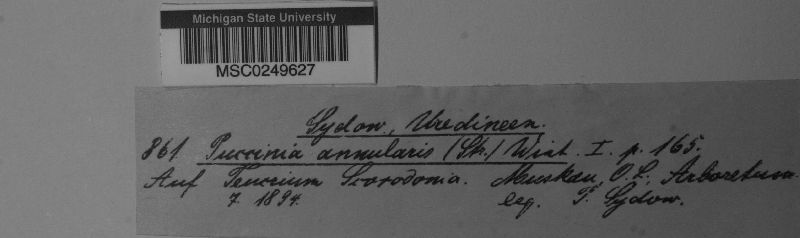 Michigan State University
MSC0249627
Sydow, Uredineen.
861. Puccinia annularis (Str.) Wint. I. p. 165.
Auf Teucrium Scorodonia. Muskau, O. L., Arboretum.
7. 1894. leg. P. Sydow.